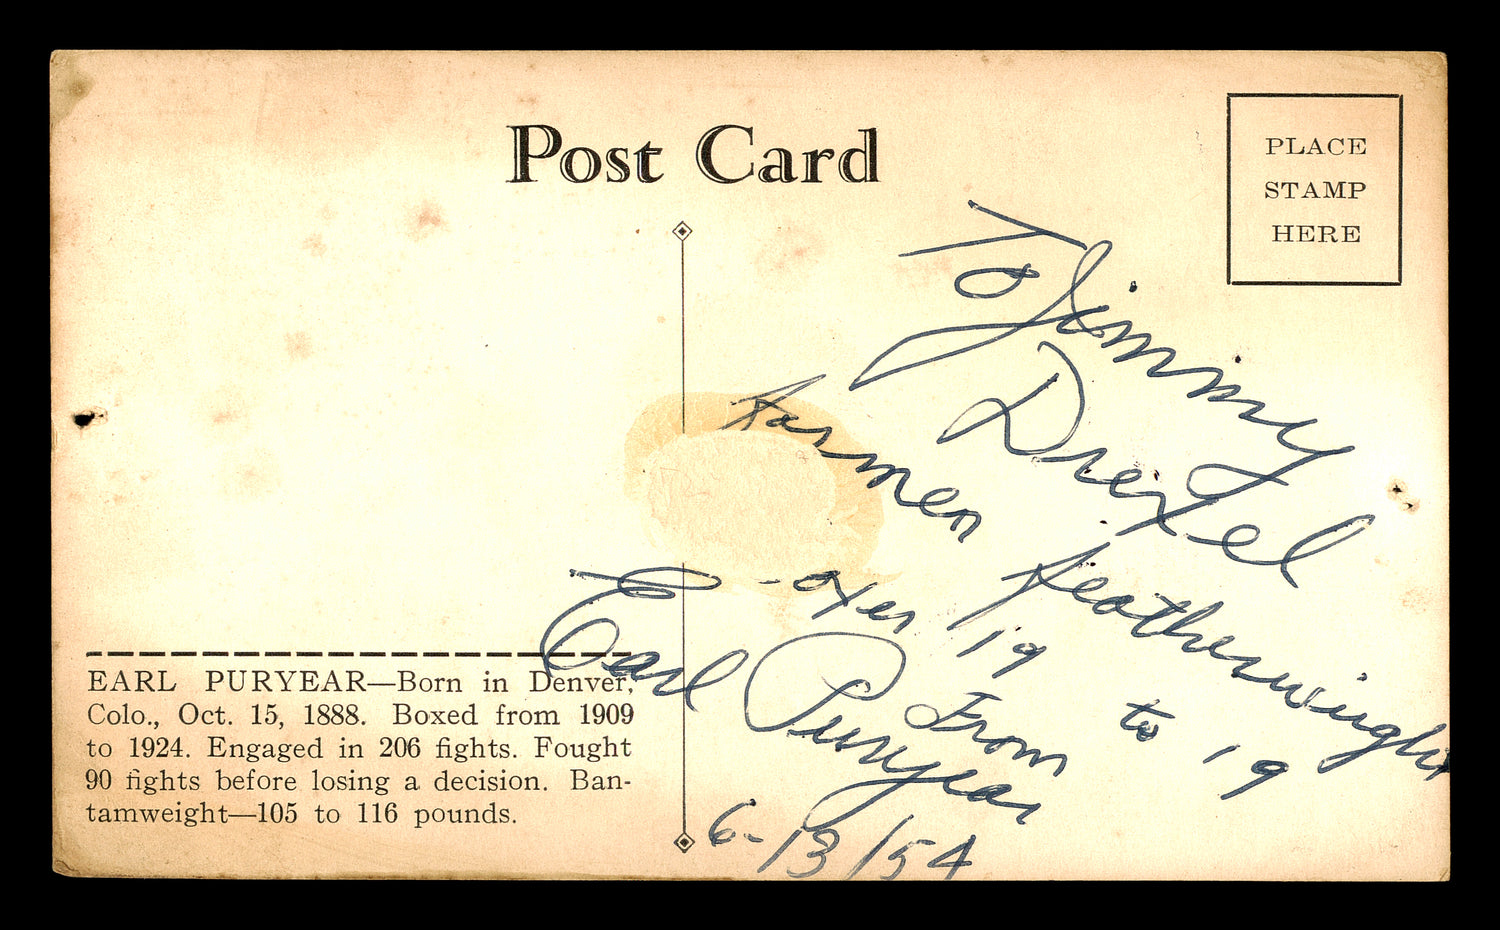 Post Card
PLACE
STAMP
HERE
To Jimmy
Drexel
Farmer Featherweight
-oxer 19 to 19
From
Earl Puryear
6-13/54
EARL PURYEAR—Born in Denver,
Colo., Oct. 15, 1888. Boxed from 1909
to 1924. Engaged in 206 fights. Fought
90 fights before losing a decision. Ban-
tamweight—105 to 116 pounds.